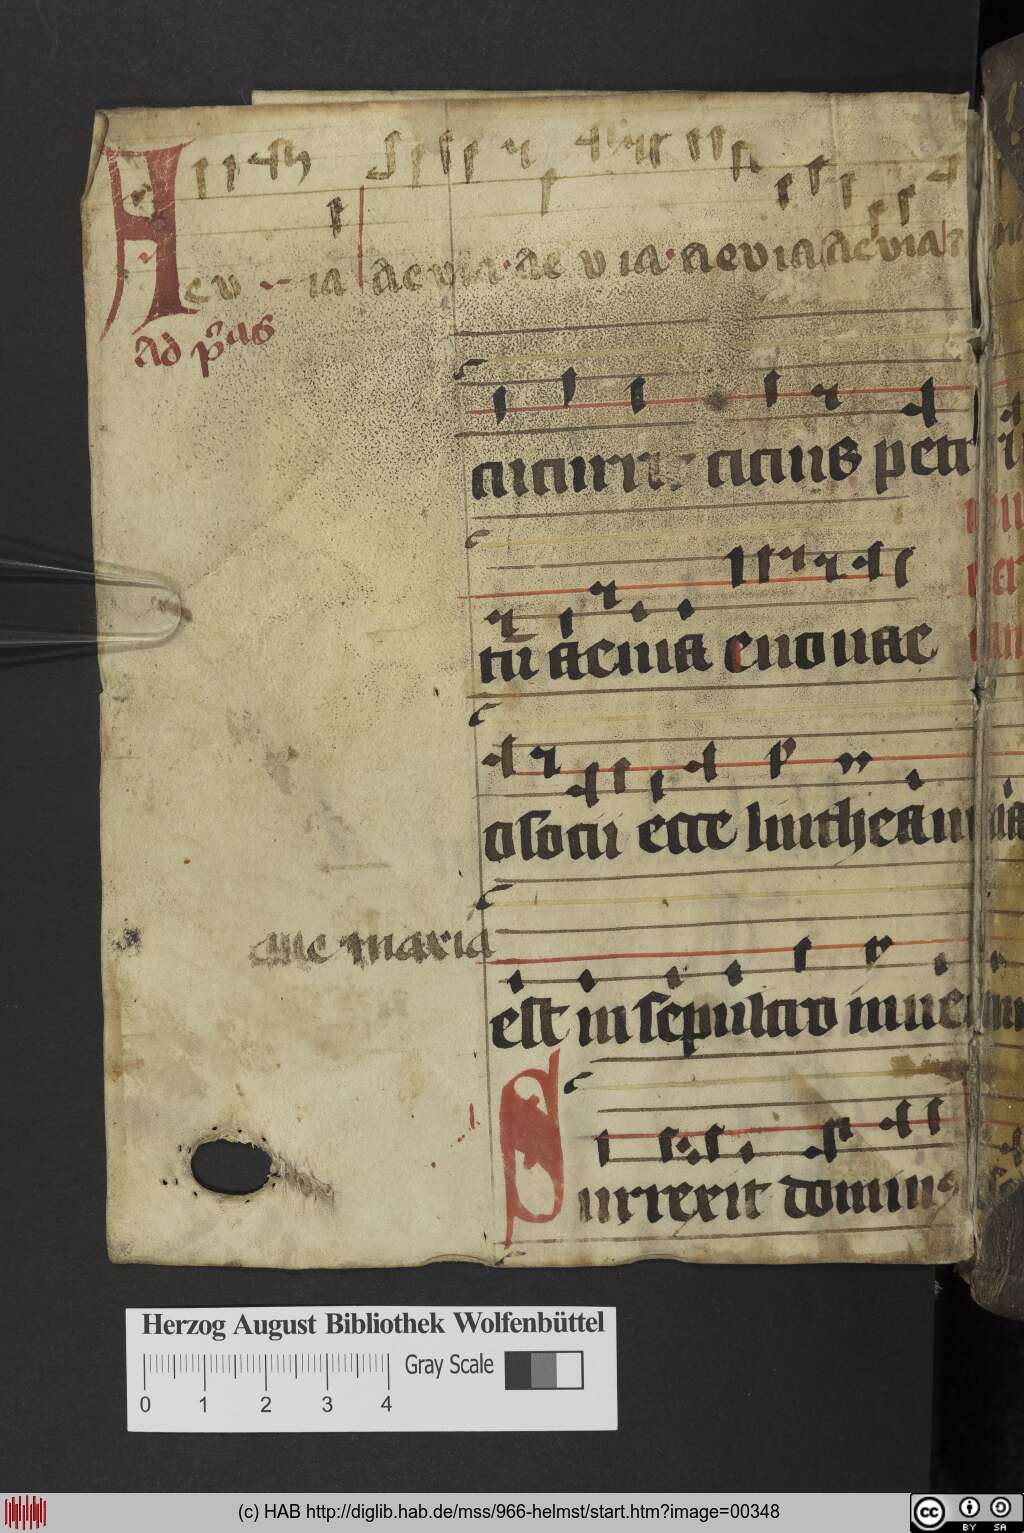 Aeu ia aeuia ae u ia aeuia aeuia
ad p̄as
cucurrit citius petr
tū aeuia euouae
o socii ecce lintheamī
aue maria
est in sepulcro inue
Surrexit dominꝰ
Herzog August Bibliothek Wolfenbüttel
Gray Scale
0 1 2 3 4
(c) HAB http://diglib.hab.de/mss/966-helmst/start.htm?image=00348
cc BY SA